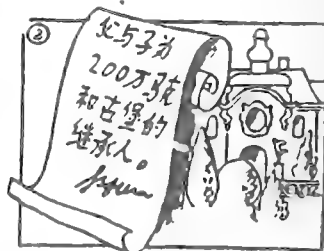 ②
父与子为
200万马克
和古堡的
继承人。